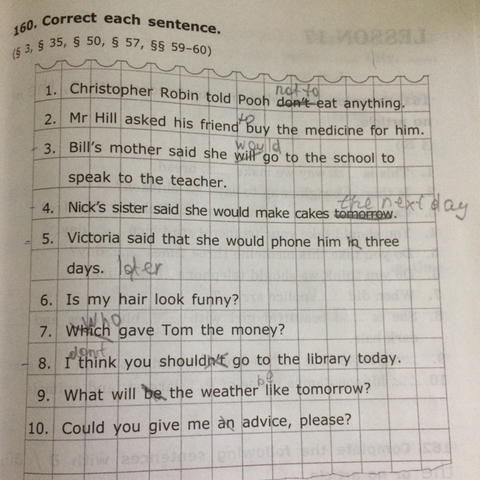 160. Correct each sentence.
(§ 3, § 35, § 50, § 57, §§ 59–60)
not to
1. Christopher Robin told Pooh don't eat anything.
to
2. Mr Hill asked his friend buy the medicine for him.
would
3. Bill's mother said she will go to the school to
speak to the teacher.
the next day
4. Nick's sister said she would make cakes tomorrow.
5. Victoria said that she would phone him in three
days. later
6. Is my hair look funny?
Who
7. Which gave Tom the money?
don't
8. I think you shouldn't go to the library today.
be
9. What will be the weather like tomorrow?
10. Could you give me an advice, please?